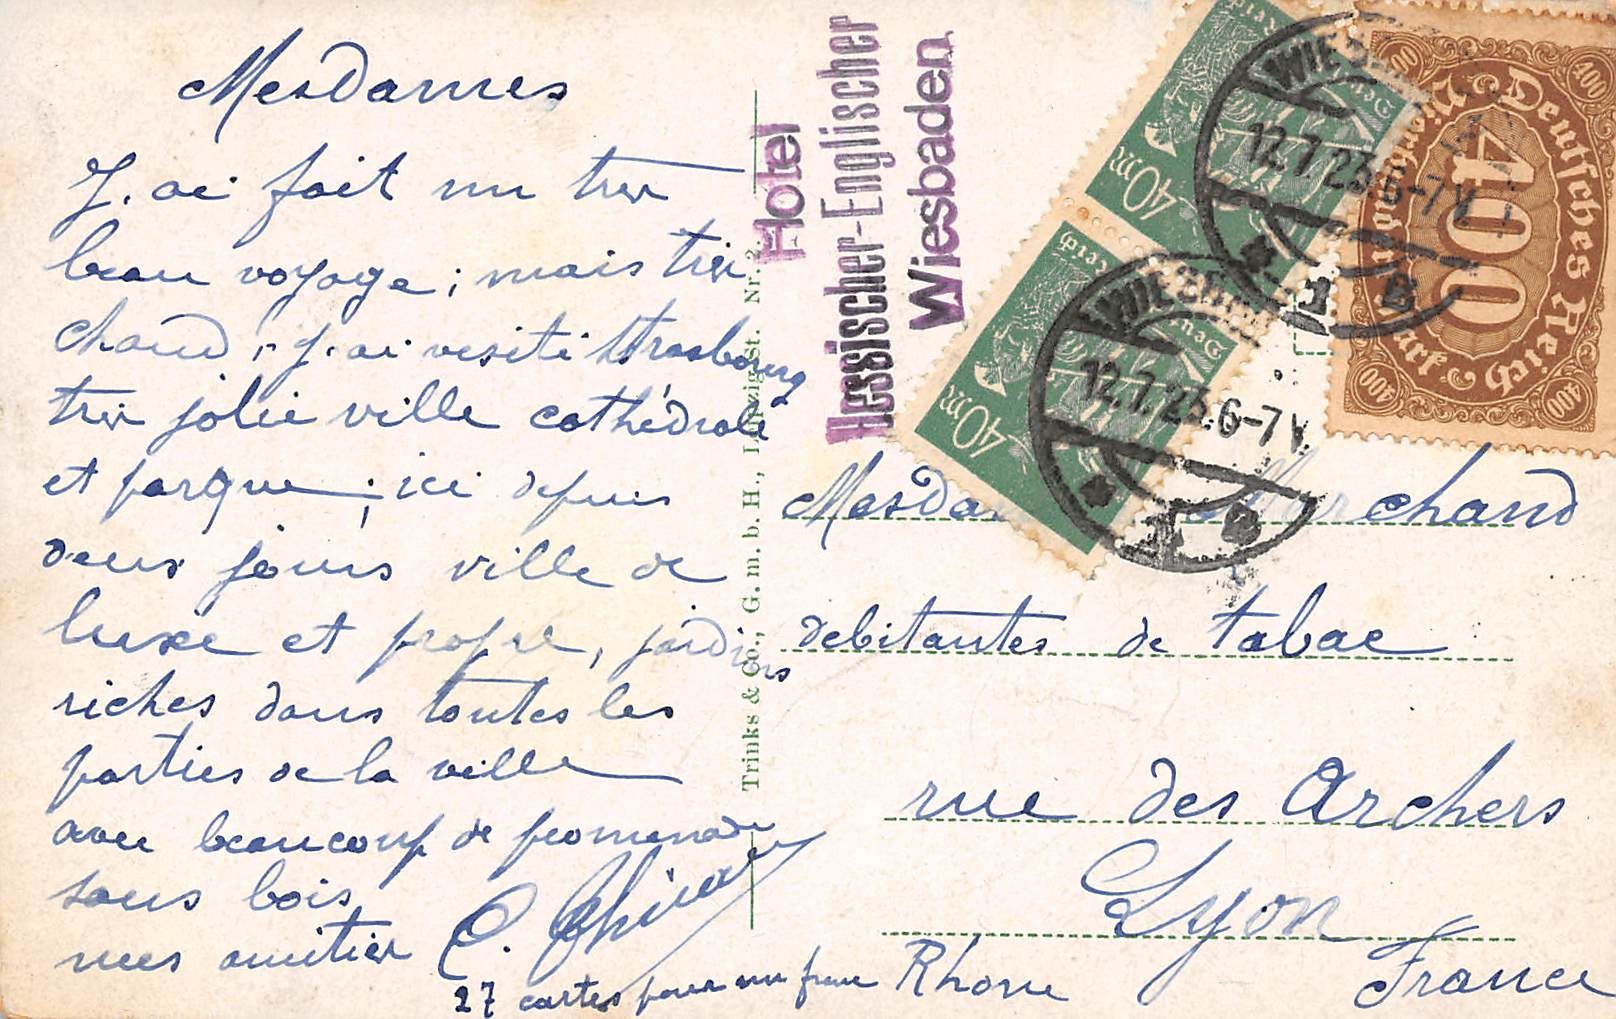 Mesdames
J. ai fait un tres
beau voyage ; mais tres
chaud, j. ai visité Strasbourg
tres jolie ville cathédrale
et parque ; ici depuis
deux jours ville de
luxe et propre, jardins
riches dans toutes les
parties de la ville
avec beaucoup de promenade
sous bois
mes amitier C.
27 cartes pour un franc
Trinks & Co., G. m. b. H., Leipzig. St. Nr. 2.
Hotel
Hessischer-Englischer
Wiesbaden
40 m
Deutsches Reich
40 m
Deutsches Reich
400
Deutsches Reich
Vierhundert Mark
400
400
400
WIESBADEN
12.7.23.6-7 V.
* 1 B
WIESBADEN
12.7.23.6-7 V.
* 1 B
Mesdames Marchand
debitantes de tabac
rue des Archers
Lyon
Rhone France